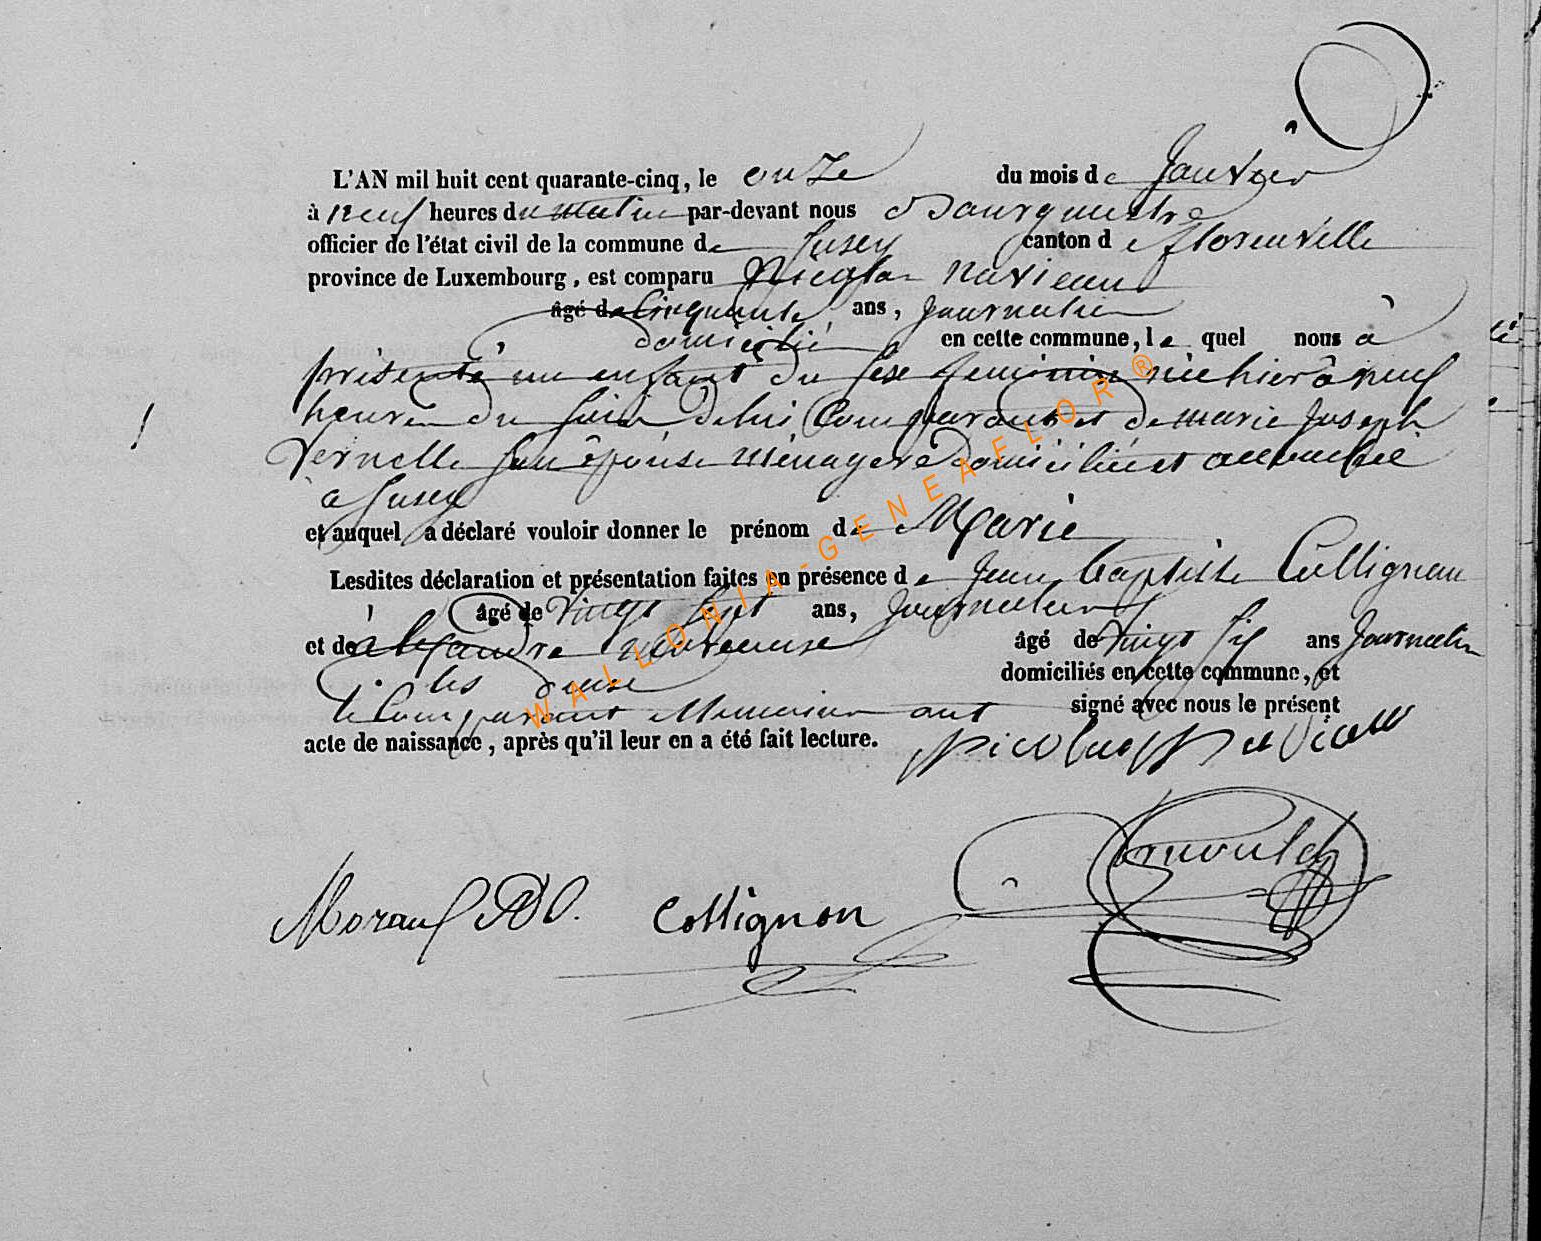 L'AN mil huit cent quarante-cinq, le onze du mois de Janvier
à neuf heures du matin par-devant nous Bourguestre
officier de l'état civil de la commune de canton de florenville
province de Luxembourg, est comparu Nicolas navieau
âgé de Cinquante ans, Journalier
domicilié en cette commune, le quel nous à
présenté un enfant du sexe feminin née hier à neuf
heures du soir de lui Comparant et de marie Joseph
Vernelle son épouse ménagere domiciliée et
à
et auquel a déclaré vouloir donner le prénom de Marie
Lesdites déclaration et présentation faites en présence de Jean baptiste Collignon
âgé de vingt sept ans, Journalier
et de ans Journalier
âgé de vingt six
les deux domiciliés en cette commune, et
le Comparant ont signé avec nous le présent
acte de naissance, après qu'il leur en a été fait lecture.
Nicolas Navieau
Collignon
WALLONIA-GENEAFLOR®